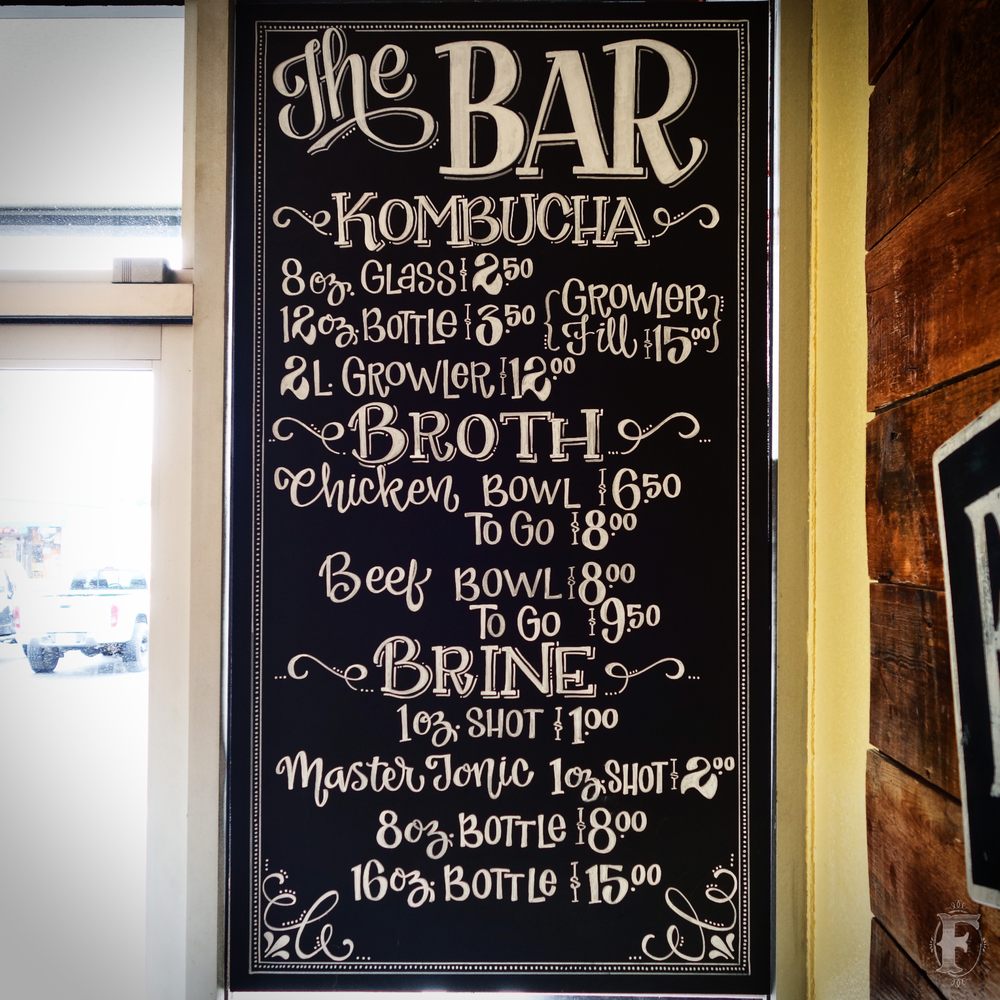 The BAR
KOMBUCHA
8oz. GLASS $2.50
12oz. BOTTLE $3.50
{GROWLER
Fill $15.00}
2L. GROWLER $12.00
BROTH
Chicken BOWL $6.50
TO GO $8.00
Beef BOWL $8.00
TO GO $9.50
BRINE
1oz. SHOT $1.00
Master Tonic 1oz. SHOT $2.00
8oz. BOTTLE $8.00
16oz. BOTTLE $15.00
F